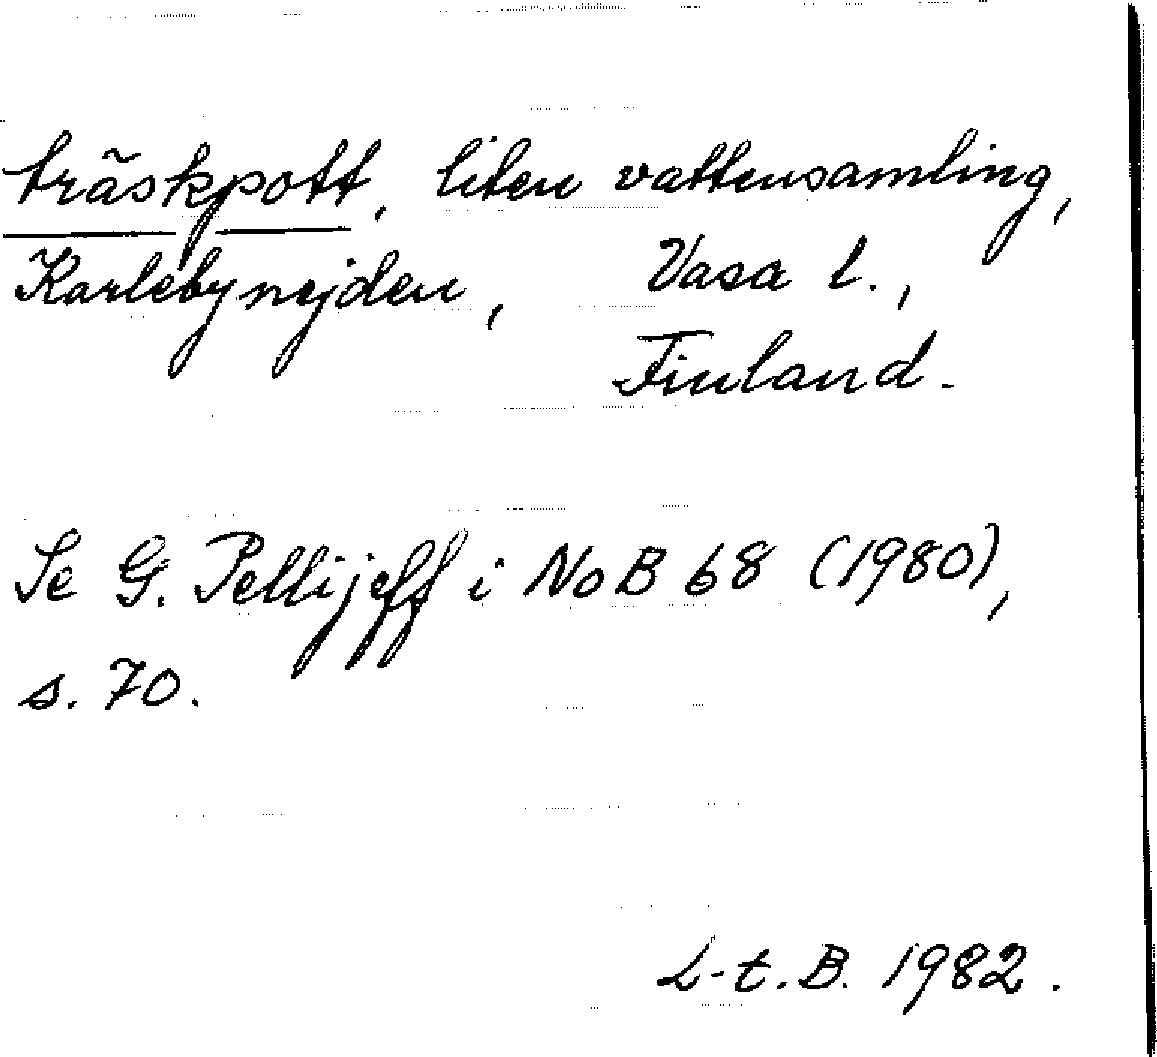 träskpott, liten vattensamling,
Karlebynejden, Vasa l.,
Finland.
Se G. Pellijeff i NoB 68 (1980),
s. 70.
L-t. B. 1982.